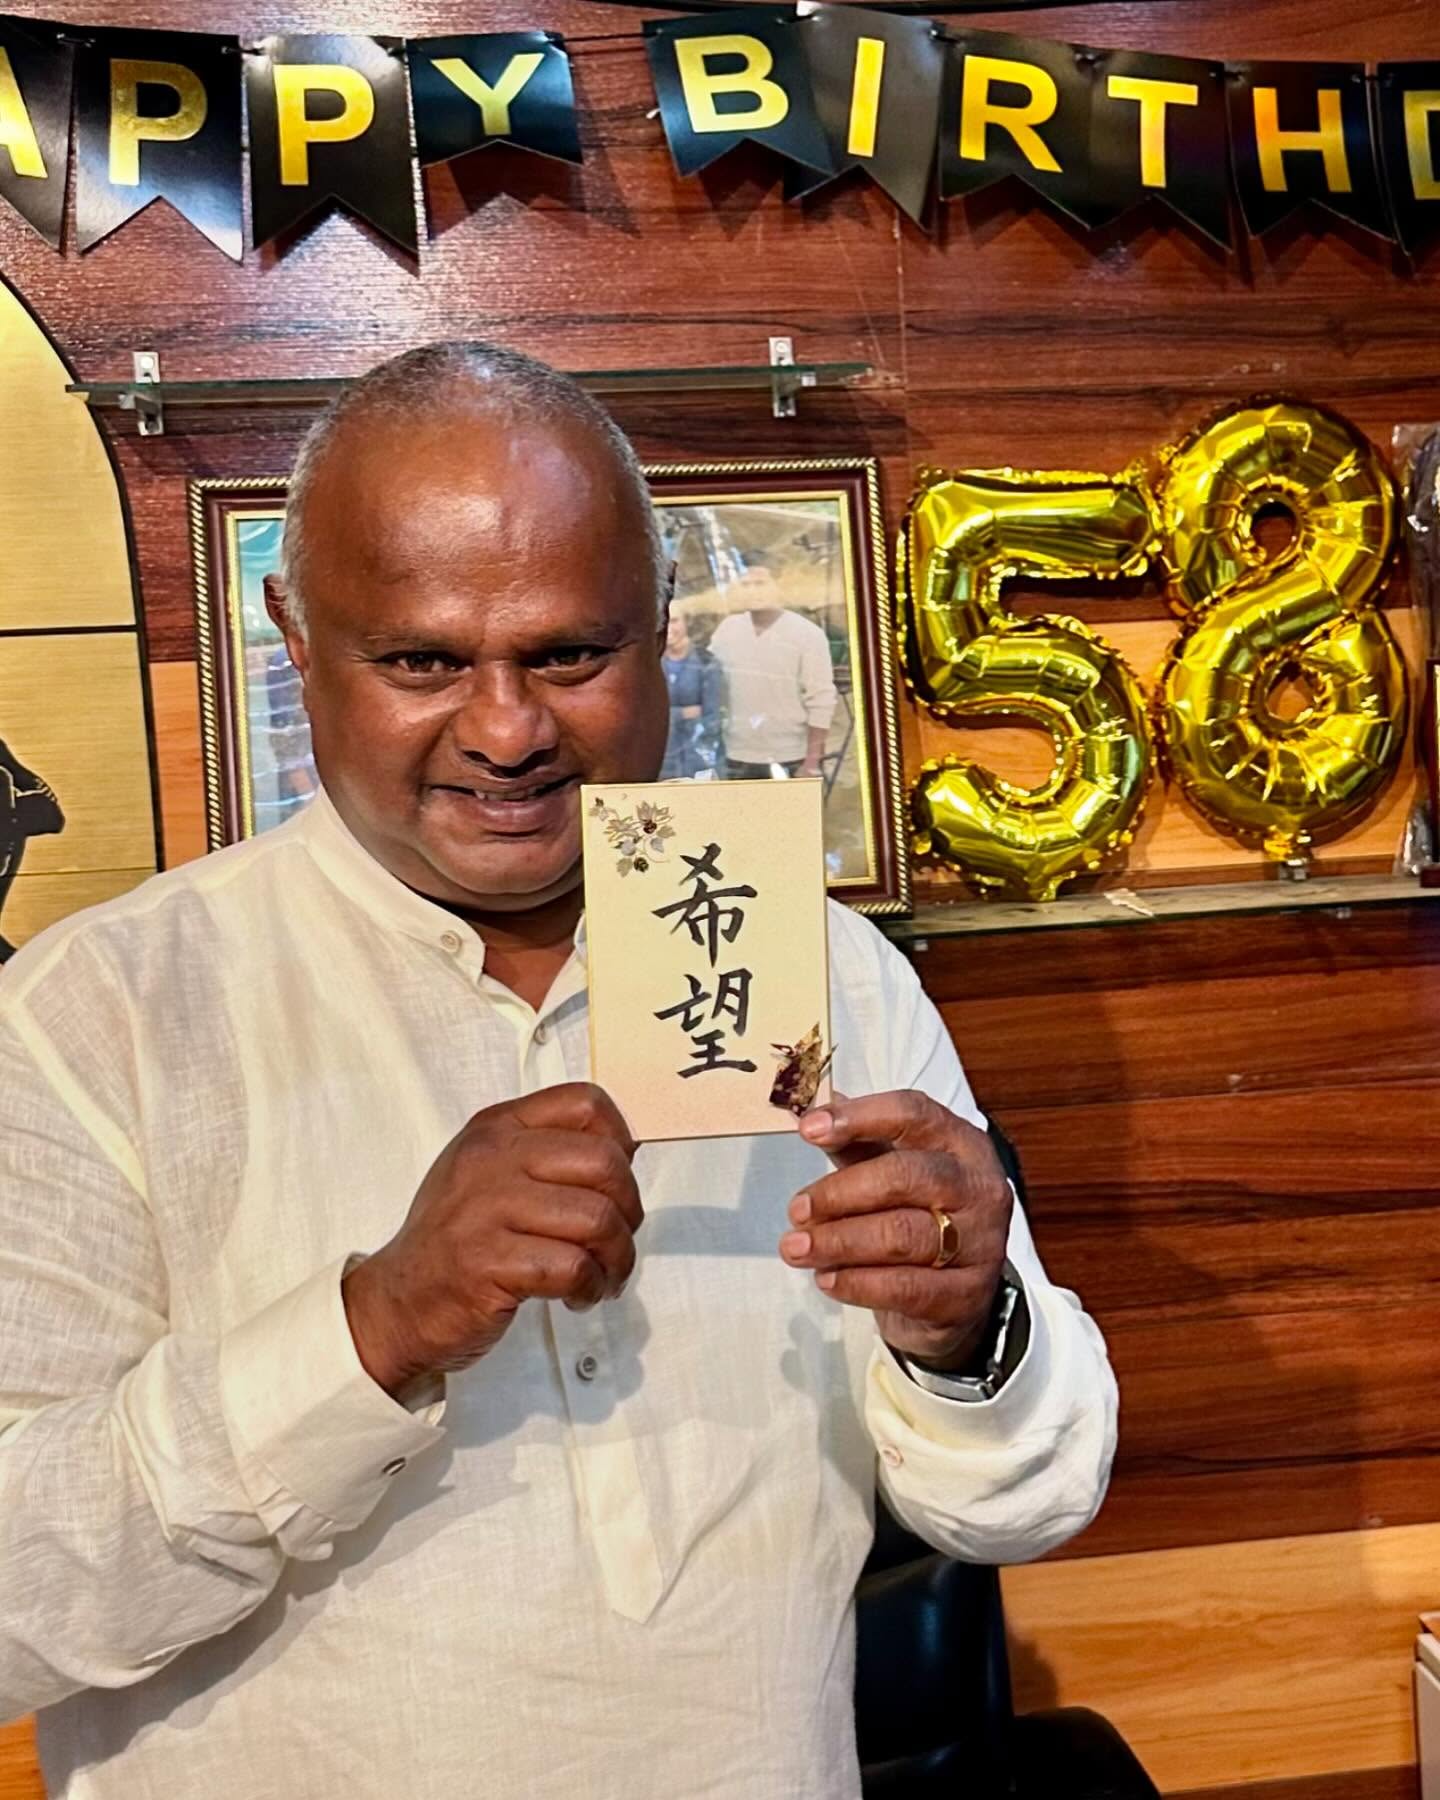 APPY BIRTHD
58
希
望